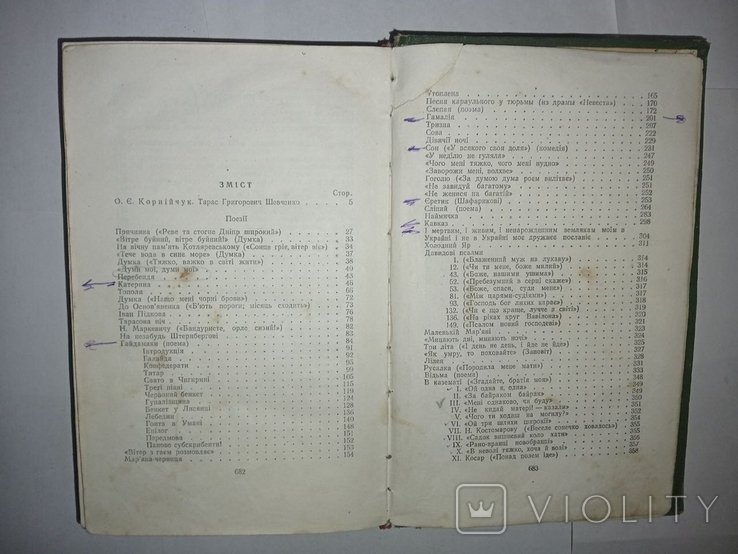 ЗМІСТ
Стор.
О. Є. Корнійчук. Тарас Григорович Шевченко 5
Поезії
Причинна («Реве та стогне Дніпр широкий») 27
«Вітре буйний, вітре буйний!» (Думка) 33
На вічну пам'ять Котляревському («Сонце гріє, вітер віє») 34
«Тече вода в синє море» (Думка) 37
Думка («Тяжко, важко в світі жити») 38
«Думи мої, думи мої» 49
Перебендя 43
Катерина 46
Тополя 66
Думка («Нащо мені чорні брови») 72
До Основ'яненка («Б'ють пороги; місяць сходить») 73
Іван Підкова 76
Тарасова ніч 78
Н. Маркевичу («Бандуристе, орле сизий!») 82
На незабудь Штернбергові 83
Гайдамаки (поема) 84
Інтродукція 91
Галайда 94
Конфедерати 95
Титар 99
Свято в Чигирині 104
Треті півні 115
Червоний бенкет 119
Гупалівщина 124
Бенкет у Лисянці 127
Лебедин 134
Гонта в Умані 139
Епілог 143
Передмова 148
Панове субскрибенти! 151
«Вітер з гаєм розмовляє» 152
Мар'яна-черниця 154
682
Утоплена 165
Песня караульного у тюрьмы (из драмы «Невеста») 170
Слепая (поэма) 172
Гамалія 201
Тризна 207
Сова 222
Дівичії ночі 229
Сон («У всякого своя доля») (комедія) 231
«У неділю не гуляла» 247
«Чого мені тяжко, чого мені нудно» 249
«Заворожи мені, волхве» 250
Гоголю («За думою дума роєм вилітає») 251
«Не завидуй багатому» 251
«Не женися на багатій» 252
Єретик (Шафарикові) 253
Сліпий (поема) 264
Наймичка 283
Кавказ 298
І мертвим, і живим, і ненарожденним землякам моїм в
Україні і не в Україні моє дружнєє посланіє 304
Холодний Яр 311
Давидові псалми
1. («Блаженний муж на лукаву) 314
12. («Чи ти мене, боже милий) 314
43. («Боже, нашими ушима) 315
52. («Пребезумний в серці скаже) 316
53. («Боже, спаси, суди мене) 316
81. («Між царями-судіями) 317
93. («Господь бог лихих карає) 318
132. («Чи є що краще, лучче в світі) 319
136. («На ріках круг Вавілона) 319
149. («Псалом новий господеві) 320
Маленькій Мар'яні 321
«Минають дні, минають ночі» 322
Три літа («І день не день, і йде не йде) 323
«Як умру, то поховайте» (Заповіт) 325
Лілея 325
Русалка («Породила мене мати») 328
Відьма (поема) 330
В казематі («Згадайте, братія моя») 348
I. «Ой одна я, одна» 349
II. «За байраком байрак» 350
III. «Мені однаково, чи буду» 351
IV. «Не кидай матері! — казали» 352
V. «Чого ти ходиш на могилу?» 352
VI. «Ой три шляхи широкії» 354
VII. Н. Костомарову («Веселе сонечко ховалось») 355
VIII. «Садок вишневий коло хати» 355
IX. «Рано-вранці новобранці» 356
X. «В неволі тяжко, хоча й волі» 357
XI. Косар («Понад полем іде») 358
683
VIOLITY